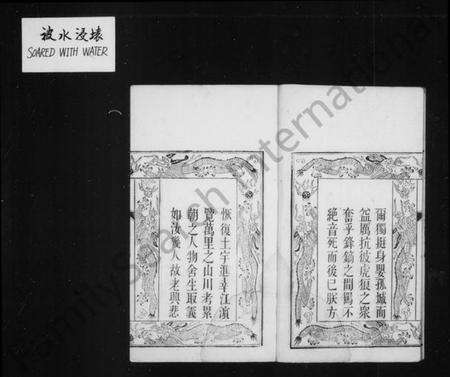 被水浸壞
SOARED WITH WATER
爾獨挺身嬰孤城而
益厲抗彼虎狼之衆
奮乎鋒鏑之間鶚不
絕音死而後已朕方
恢復土宇進幸江濵
覽萬里之山川考累
朝之人物舍生取義
如汝幾人故老興悲
FamilySearch International